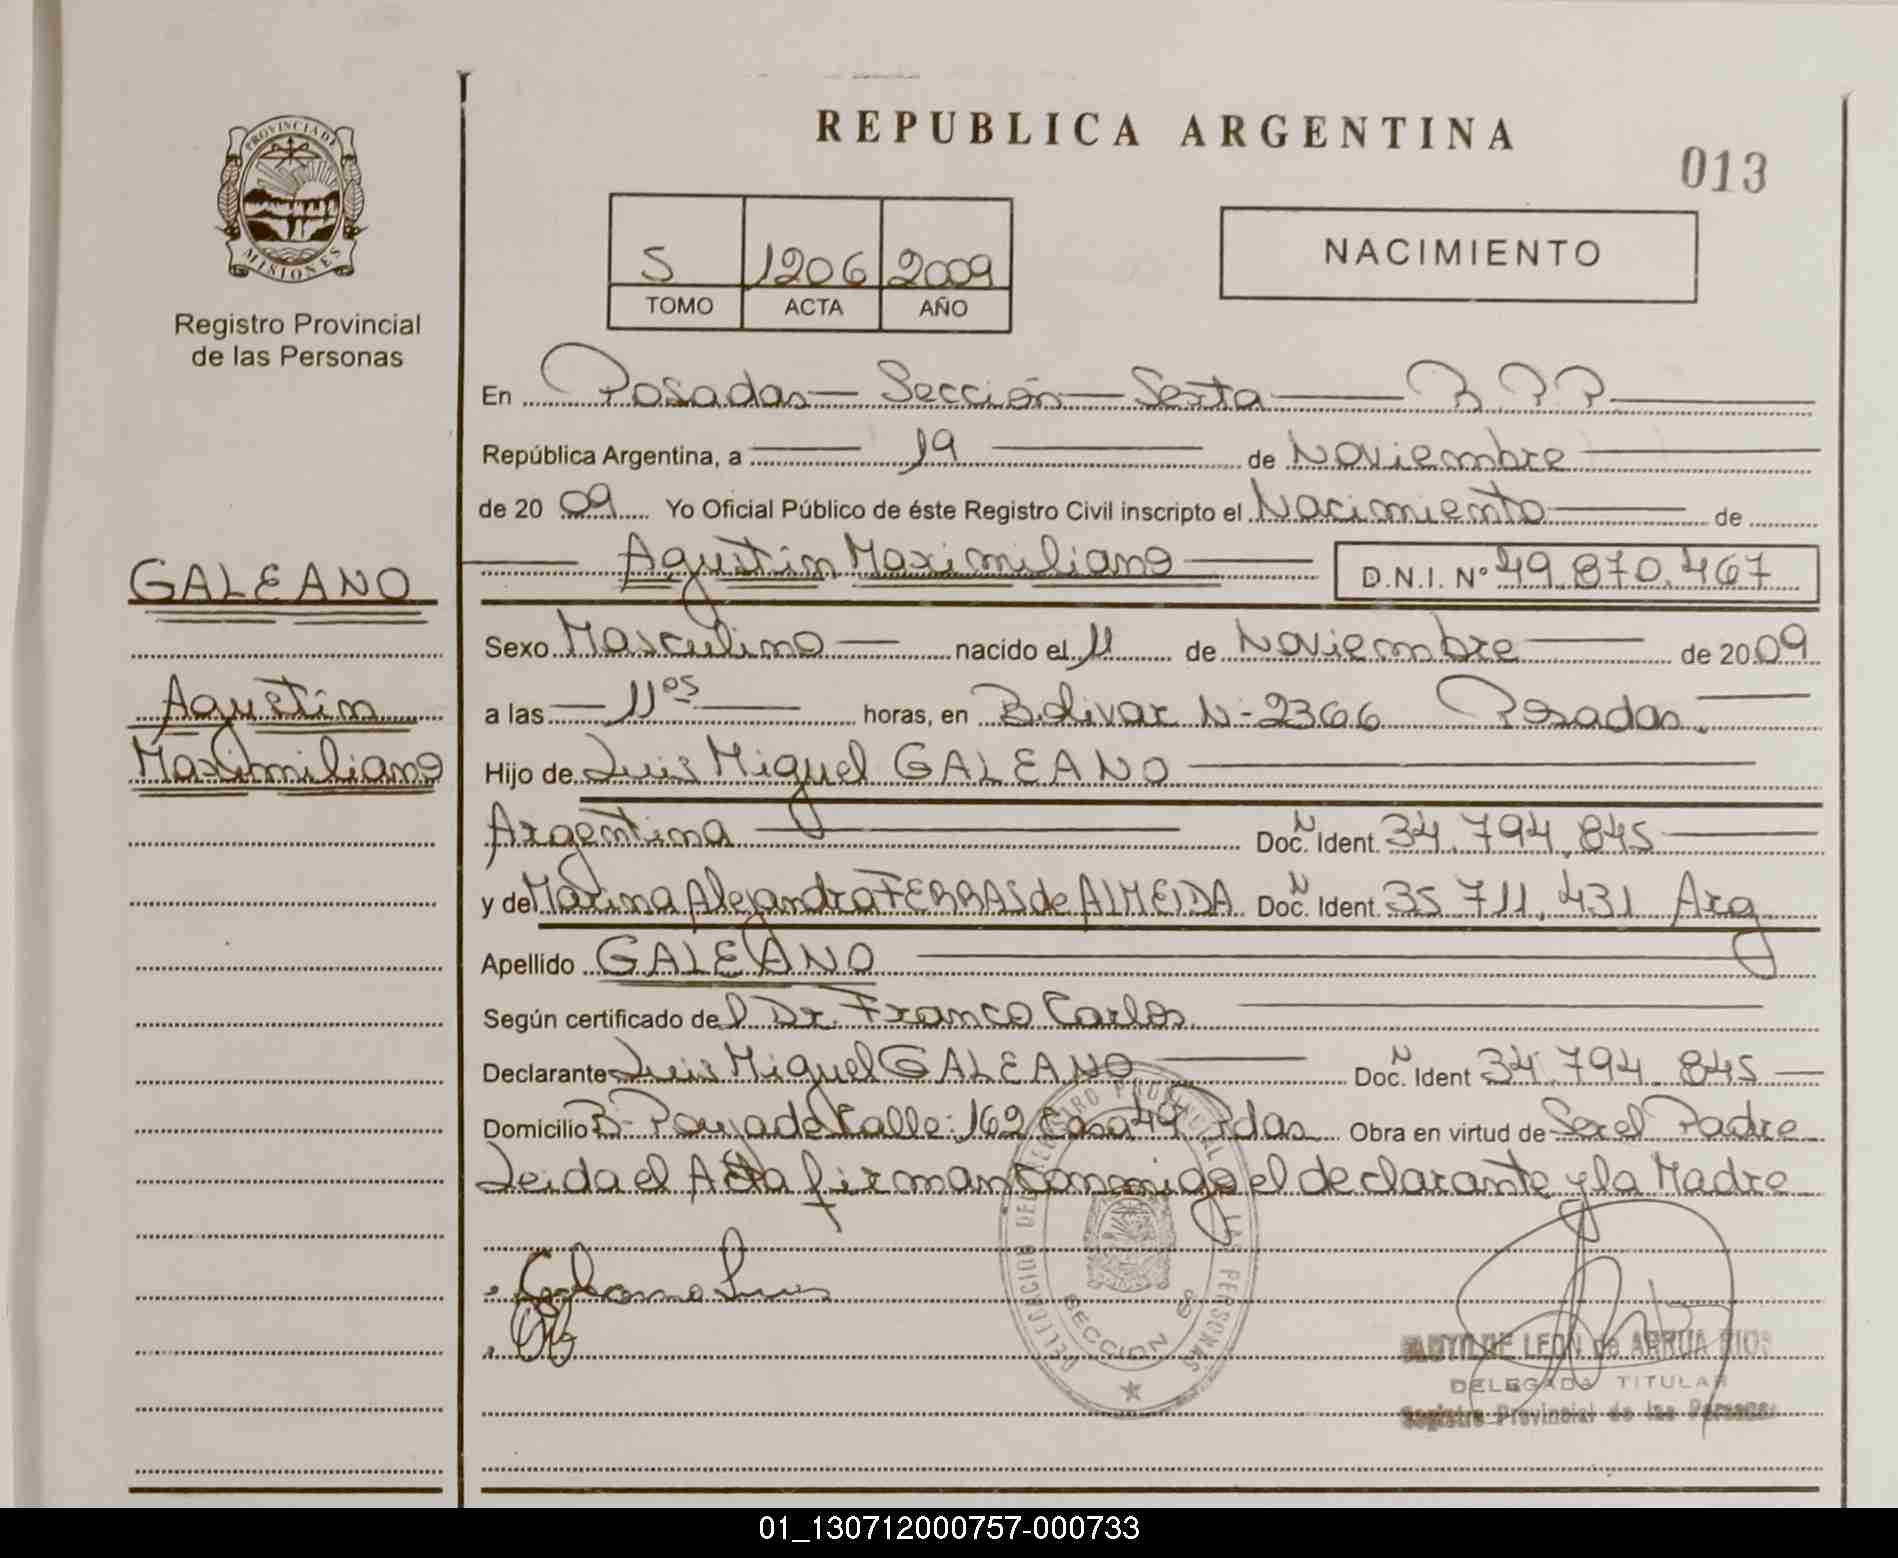 REPUBLICA ARGENTINA
013
PROVINCIA DE
MISIONES
Registro Provincial
de las Personas
5 1206 2009
TOMO ACTA AÑO
NACIMIENTO
En Posadas Sección Sexta
República Argentina, a 19 de Noviembre
de 2009 Yo Oficial Público de éste Registro Civil inscripto el Nacimiento de
Agustin Maximiliano D.N.I. Nº 49.870.467
GALEANO
Agustin
Maximiliano
Sexo Masculino nacido el 11 de Noviembre de 2009
a las 11 05 horas, en Bolivar N- 2366 Posadas.
Hijo de Luis Miguel GALEANO
Argentina Doc. N Ident. 34.794.845
y de Marina Alejandra FERRAS de ALMEIDA Doc. N Ident. 35 711.431 Arg
Apellido GALEANO
Según certificado del Dr. Franco Carlos
Declarante Luis Miguel GALEANO Doc. N Ident 34.794.845
Domicilio B- Poujade Calle: 162 Casa 49 Pdas Obra en virtud de Ser el Padre
Leida el Acta firman conmigo el declarante y la Madre
Galeano Luis
DELEGACION DEL REGISTRO PROVINCIAL DE LAS PERSONAS
SECCION 6º
LEON de ARRUA RIOS
DELEGADA TITULAR
Registro Provincial de las Personas
01_130712000757-000733